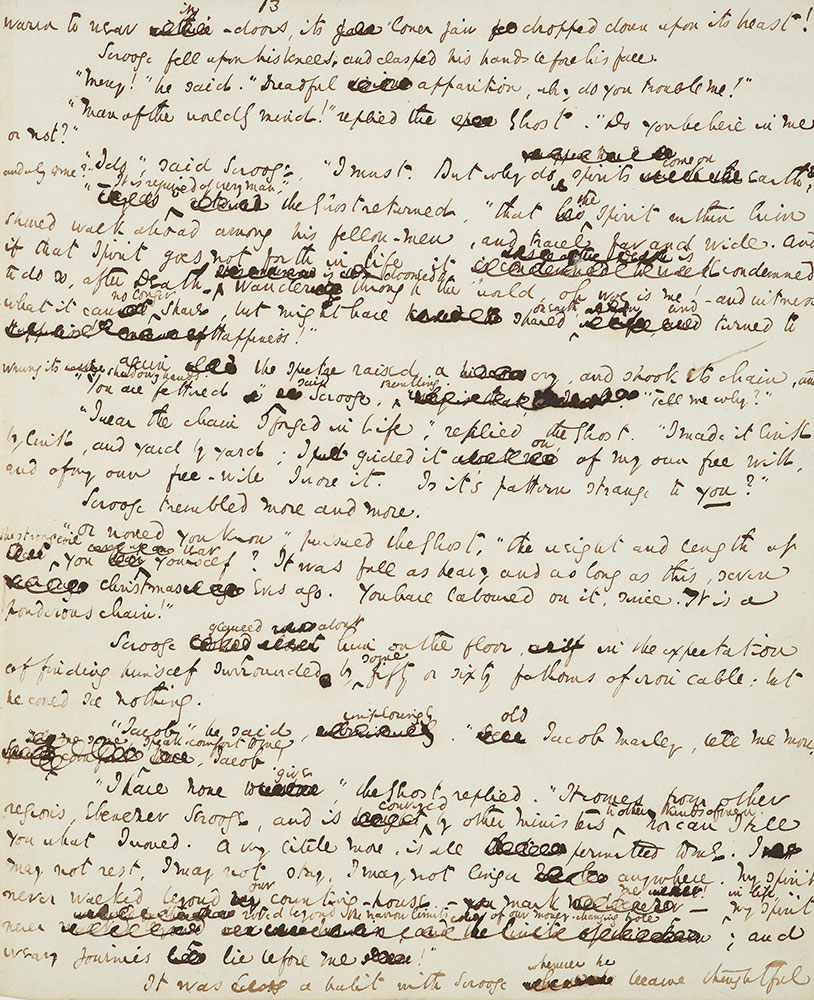 13
warm to wear in-doors, its lower jaw dropped down upon its breast!
Scrooge fell upon his knees, and clasped his hands before his face.
"Mercy!" he said. "Dreadful apparition, why do you trouble me!"
"Man of the worldly mind!" replied the Ghost. "Do you believe in me
or not?"
"I do", said Scrooge, "I must. But why do spirits come on earth,
and why to me?"
"It is required of every man," the Ghost returned, "that the Spirit within him
should walk abroad among his fellow-men, and travel far and wide. And
if that Spirit goes not forth in life, it is condemned
to do so, after Death. doomed to wander through the world oh woe is me! – and witness
what it cannot share, but might have shared on earth, and turned to
Happiness!"
again the spectre raised a cry, and shook its chain, and
wrung its shadowy hands.
"You are fettered" said Scrooge, trembling. "Tell me why?"
"I wear the chain I forged in life," replied the Ghost. "I made it link
by link, and yard by yard. I girded it on of my own free will,
and of my own free-will I wore it. Is it's pattern strange to you?"
Scrooge trembled more and more.
"or would you know" pursued the Ghost, "the weight and length of
the strong coil you bear yourself? It was full as heavy and as long as this, seven
Christmas Eves ago. You have laboured on it, since. It is a
ponderous chain!"
Scrooge glanced about him on the floor, in the expectation
of finding himself surrounded by some fifty or sixty fathoms of iron cable: but
he could see nothing.
"Jacob" he said, imploringly. "old Jacob Marley, tell me more.
speak comfort to me, Jacob!
"I have none to give," the Ghost replied. "It comes from other
regions, Ebenezer Scrooge, and is conveyed by other ministers, to other kinds of men. nor can I tell
you what I would. a very little more, is all permitted to me. I
may not rest, I may not stay, I may not linger anywhere. My Spirit
never walked beyond our counting-house – mark me! – in life my Spirit
never roved beyond the narrow limits of our money-changing hole; and
weary journies lie before me!"
It was a habit with Scrooge whenever he became thoughtful